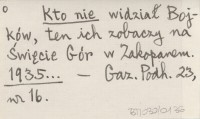 Kto nie widział Boj-
ków, ten ich zobaczy na
Święcie Gór w Zakopanem.
1935... — Gaz. Podh. 23,
nr 16.